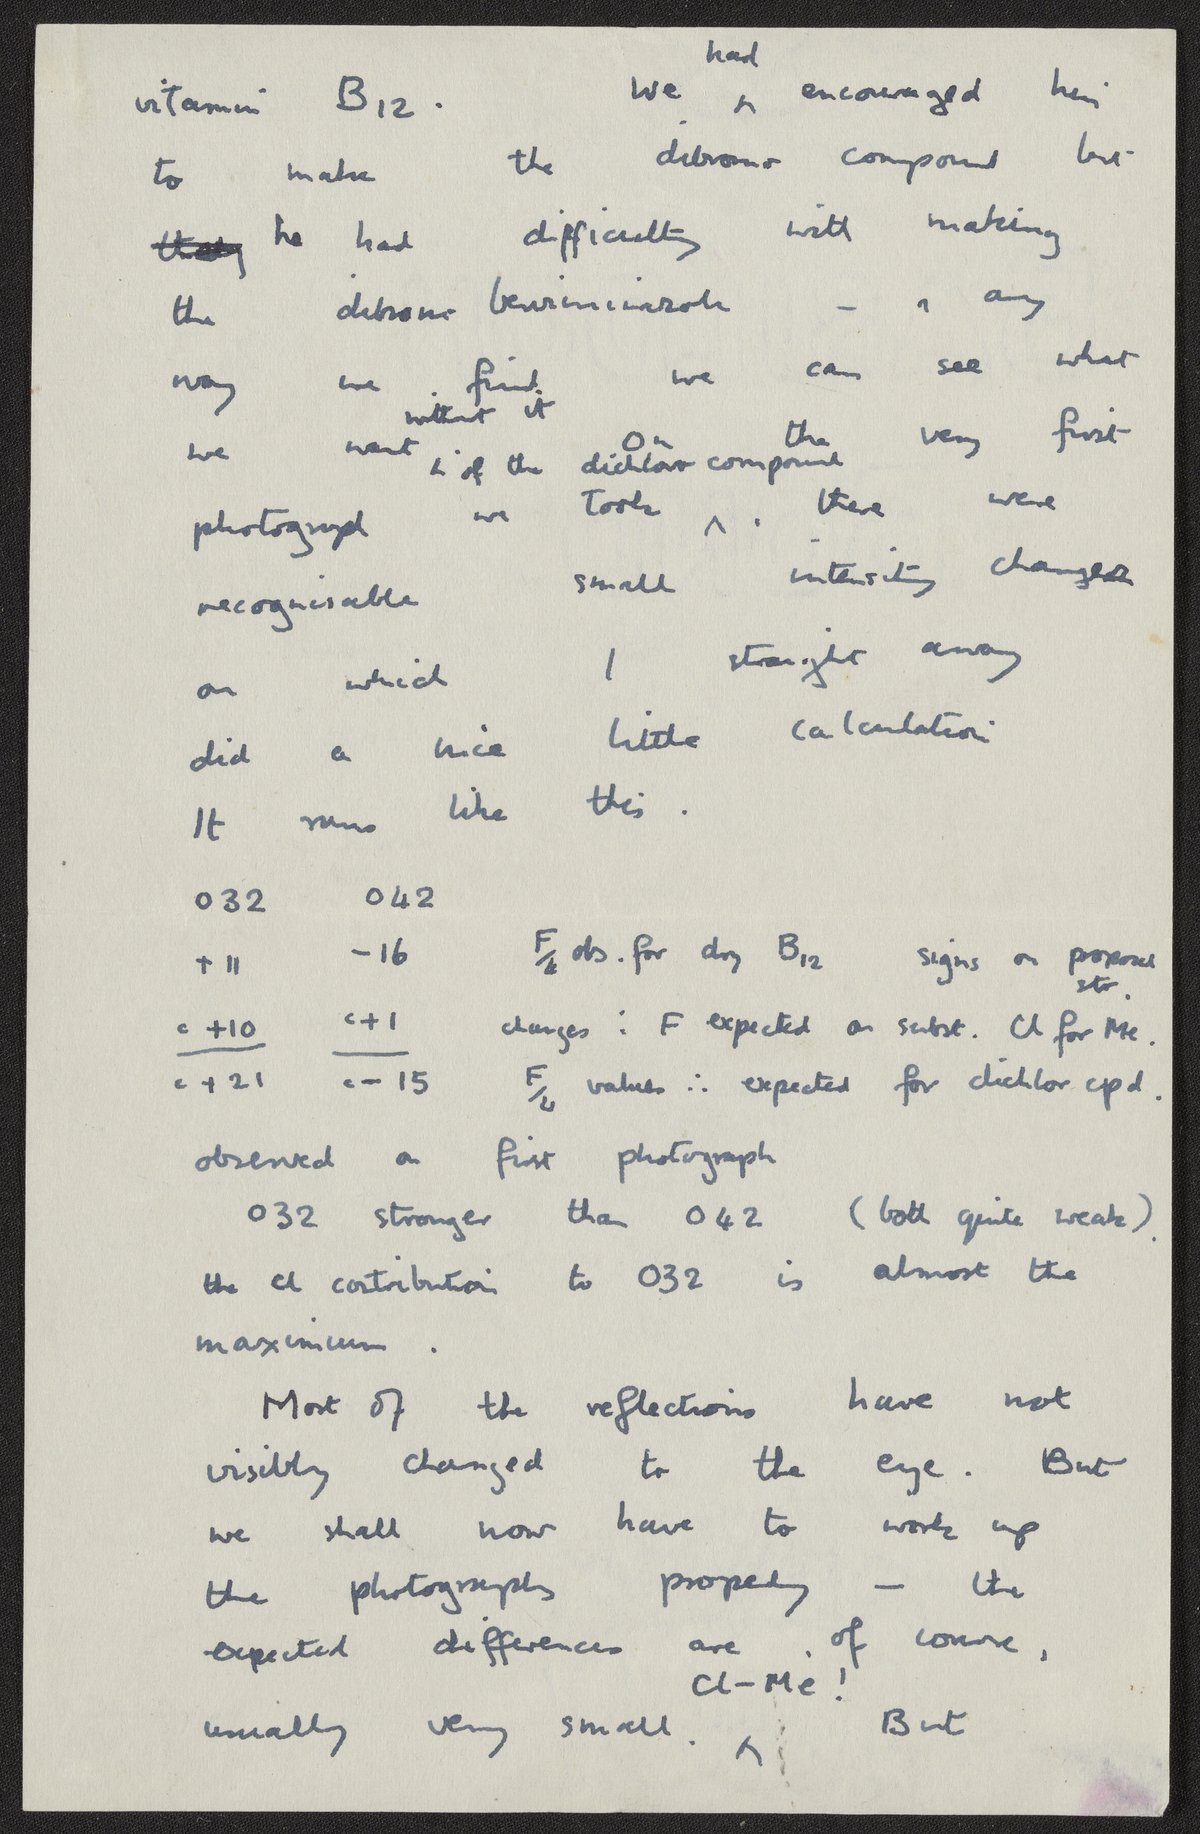 vitamin B12. We had encouraged him
to make the dibromo compound but
they he had difficulty with making
the dibromo benziminazole – any
way we find we can see what
we want without it. On the very first
photograph we took of the dichloro compound, there were
recognisable small intensity changes
on which I straight away
did a nice little calculation
It runs like this.
032 042
+11 -16 F/4 obs. for dry B12 signs on proposed str.
c +10 c+1 changes in F expected on subst. Cl for Me.
c +21 c-15 F/4 values ∴ expected for dichlor cpd.
observed on first photograph
032 stronger than 042 (both quite weak).
the Cl contribution to 032 is almost the
maximum.
Most of the reflections have not
visibly changed to the eye. But
we shall now have to work up
the photographs properly – the
expected differences are, of course,
usually very small. Cl-Me! But